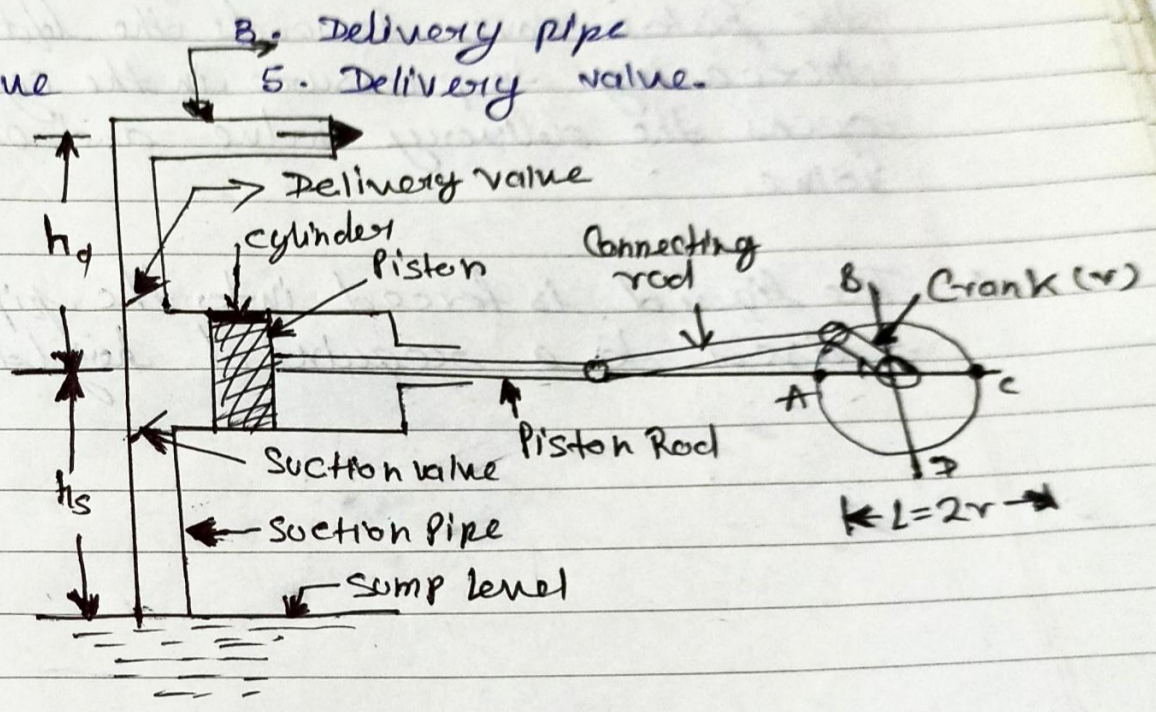 3. Delivery pipe
ue 5. Delivery value.
Delivery value
hd
cylinder
Piston
Connecting
rod
B
Crank (r)
A
C
Piston Rod
D
Suction value
hs
L=2r
Suction Pipe
Sump Level